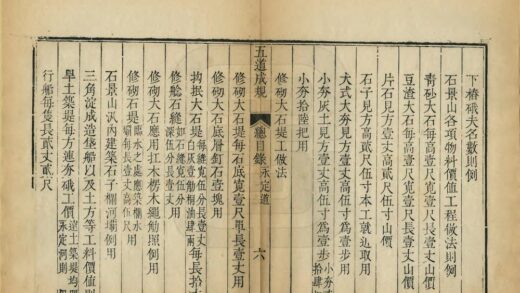 下樁硪夫名數則例
石景山各項物料價值工程做法則例
青砂大石每高壹尺寬壹尺長壹丈山價
豆渣大石每高壹尺寬壹尺長壹丈山價
片石見方壹丈高貳尺伍寸山價
石子見方高貳尺伍寸本工就近取用
大式大夯見方壹丈高伍寸爲壹步用
小夯灰土見方壹丈高伍寸爲壹步
小夯拾陸把用
修砌大石堤工做法
五道成規 總目錄 永定道 六
修砌大石堤每石底寬壹尺單長壹丈用
修砌大石堤層釘石壹塊用
拘抿大石堤每縫寬伍分長壹丈
修艌石縫
修砌大石應用扛木楞木繩觔照例用
修砌大石堤
石景山汛內建築石子攔河壩例用
三角淀成造垡船以及土方等工料價值則
旱土築堤每方連夯硪工價
行船每隻長貳丈貳尺